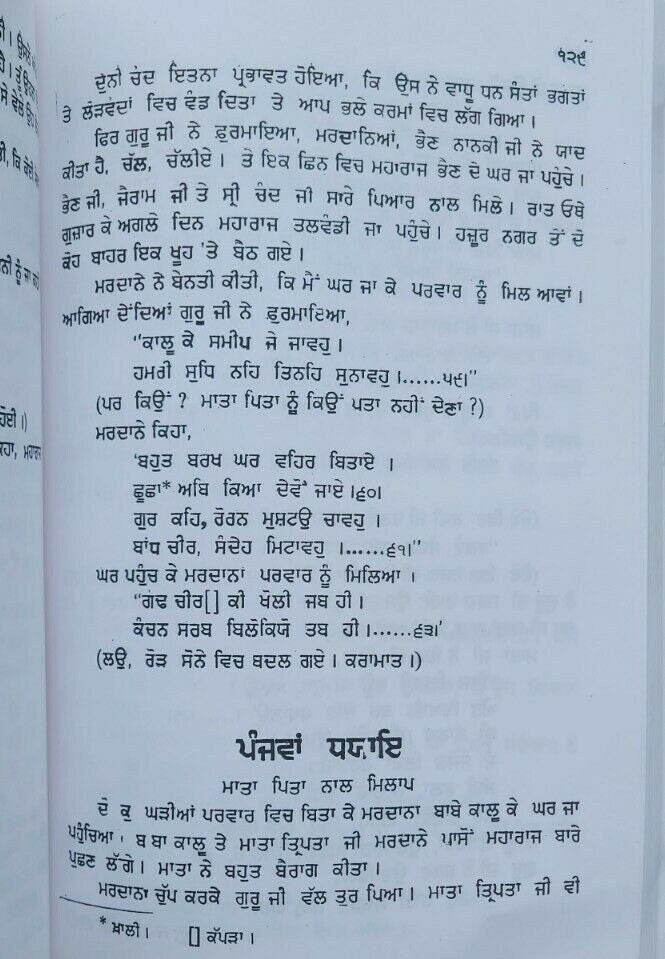 ੧੨੯
ਦੁਨੀ ਚੰਦ ਇਤਨਾ ਪ੍ਰਭਾਵਤ ਹੋਇਆ, ਕਿ ਉਸ ਨੇ ਵਾਧੂ ਧਨ ਸੰਤਾਂ ਭਗਤਾਂ
ਤੇ ਲੋੜਵੰਦਾਂ ਵਿਚ ਵੰਡ ਦਿਤਾ ਤੇ ਆਪ ਭਲੇ ਕਰਮਾਂ ਵਿਚ ਲੱਗ ਗਿਆ।
ਫਿਰ ਗੁਰੂ ਜੀ ਨੇ ਫ਼ੁਰਮਾਇਆ, ਮਰਦਾਨਿਆਂ, ਭੈਣ ਨਾਨਕੀ ਜੀ ਨੇ ਯਾਦ
ਕੀਤਾ ਹੈ, ਚੱਲ, ਚੱਲੀਏ। ਤੇ ਇਕ ਛਿਨ ਵਿਚ ਮਹਾਰਾਜ ਭੈਣ ਦੇ ਘਰ ਜਾ ਪਹੁੰਚੇ।
ਭੈਣ ਜੀ, ਜੈਰਾਮ ਜੀ ਤੇ ਸ੍ਰੀ ਚੰਦ ਜੀ ਸਾਰੇ ਪਿਆਰ ਨਾਲ ਮਿਲੇ। ਰਾਤ ਓਥੇ
ਗੁਜ਼ਾਰ ਕੇ ਅਗਲੇ ਦਿਨ ਮਹਾਰਾਜ ਤਲਵੰਡੀ ਜਾ ਪਹੁੰਚੇ। ਹਜ਼ੂਰ ਨਗਰ ਤੋਂ ਦੋ
ਕੋਹ ਬਾਹਰ ਇਕ ਖੂਹ 'ਤੇ ਬੈਠ ਗਏ।
ਮਰਦਾਨੇ ਨੇ ਬੇਨਤੀ ਕੀਤੀ, ਕਿ ਮੈਂ ਘਰ ਜਾ ਕੇ ਪਰਵਾਰ ਨੂੰ ਮਿਲ ਆਵਾਂ।
ਆਗਿਆ ਦੇਂਦਿਆਂ ਗੁਰੂ ਜੀ ਨੇ ਫ਼ੁਰਮਾਇਆ,
"ਕਾਲੂ ਕੇ ਸਮੀਪ ਜੇ ਜਾਵਹੁ।
ਹਮਰੀ ਸੁਧਿ ਨਹਿ ਤਿਨਹਿ ਸੁਨਾਵਹੁ।......੫੯।"
(ਪਰ ਕਿਉਂ ? ਮਾਤਾ ਪਿਤਾ ਨੂੰ ਕਿਉਂ ਪਤਾ ਨਹੀਂ ਦੇਣਾ ?)
ਮਰਦਾਨੇ ਕਿਹਾ,
'ਬਹੁਤ ਬਰਖ ਘਰ ਵਹਿਰ ਬਿਤਾਏ।
ਛੂਛਾ* ਅਬਿ ਕਿਆ ਦੇਵੋਂ ਜਾਏ।੬੦।
ਗੁਰ ਕਹਿ, ਰੋਰਨ ਮੁਸ਼ਟਉ ਚਾਵਹੁ।
ਬਾਂਧ ਚੀਰ, ਸੰਦੇਹ ਮਿਟਾਵਹੁ।......੬੧।"
ਘਰ ਪਹੁੰਚ ਕੇ ਮਰਦਾਨਾਂ ਪਰਵਾਰ ਨੂੰ ਮਿਲਿਆ।
"ਗੰਢ ਚੀਰ[] ਕੀ ਖੋਲੀ ਜਬ ਹੀ।
ਕੰਚਨ ਸਰਬ ਬਿਲੋਕਿਯੋ ਤਬ ਹੀ।......੬੩।'
(ਲਉ, ਰੋੜ ਸੋਨੇ ਵਿਚ ਬਦਲ ਗਏ। ਕਰਾਮਾਤ।)
ਪੰਜਵਾਂ ਧਯਾਇ
ਮਾਤਾ ਪਿਤਾ ਨਾਲ ਮਿਲਾਪ
ਦੋ ਕੁ ਘੜੀਆਂ ਪਰਵਾਰ ਵਿਚ ਬਿਤਾ ਕੇ ਮਰਦਾਨਾ ਬਾਬੇ ਕਾਲੂ ਕੇ ਘਰ ਜਾ
ਪਹੁੰਚਿਆ। ਬਾਬਾ ਕਾਲੂ ਤੇ ਮਾਤਾ ਤ੍ਰਿਪਤਾ ਜੀ ਮਰਦਾਨੇ ਪਾਸੋਂ ਮਹਾਰਾਜ ਬਾਰੇ
ਪੁਛਣ ਲੱਗੇ। ਮਾਤਾ ਨੇ ਬਹੁਤ ਬੈਰਾਗ ਕੀਤਾ।
ਮਰਦਾਨਾ ਚੁੱਪ ਕਰਕੇ ਗੁਰੂ ਜੀ ਵੱਲ ਤੁਰ ਪਿਆ। ਮਾਤਾ ਤ੍ਰਿਪਤਾ ਜੀ ਵੀ
* ਖ਼ਾਲੀ। [] ਕੱਪੜਾ।